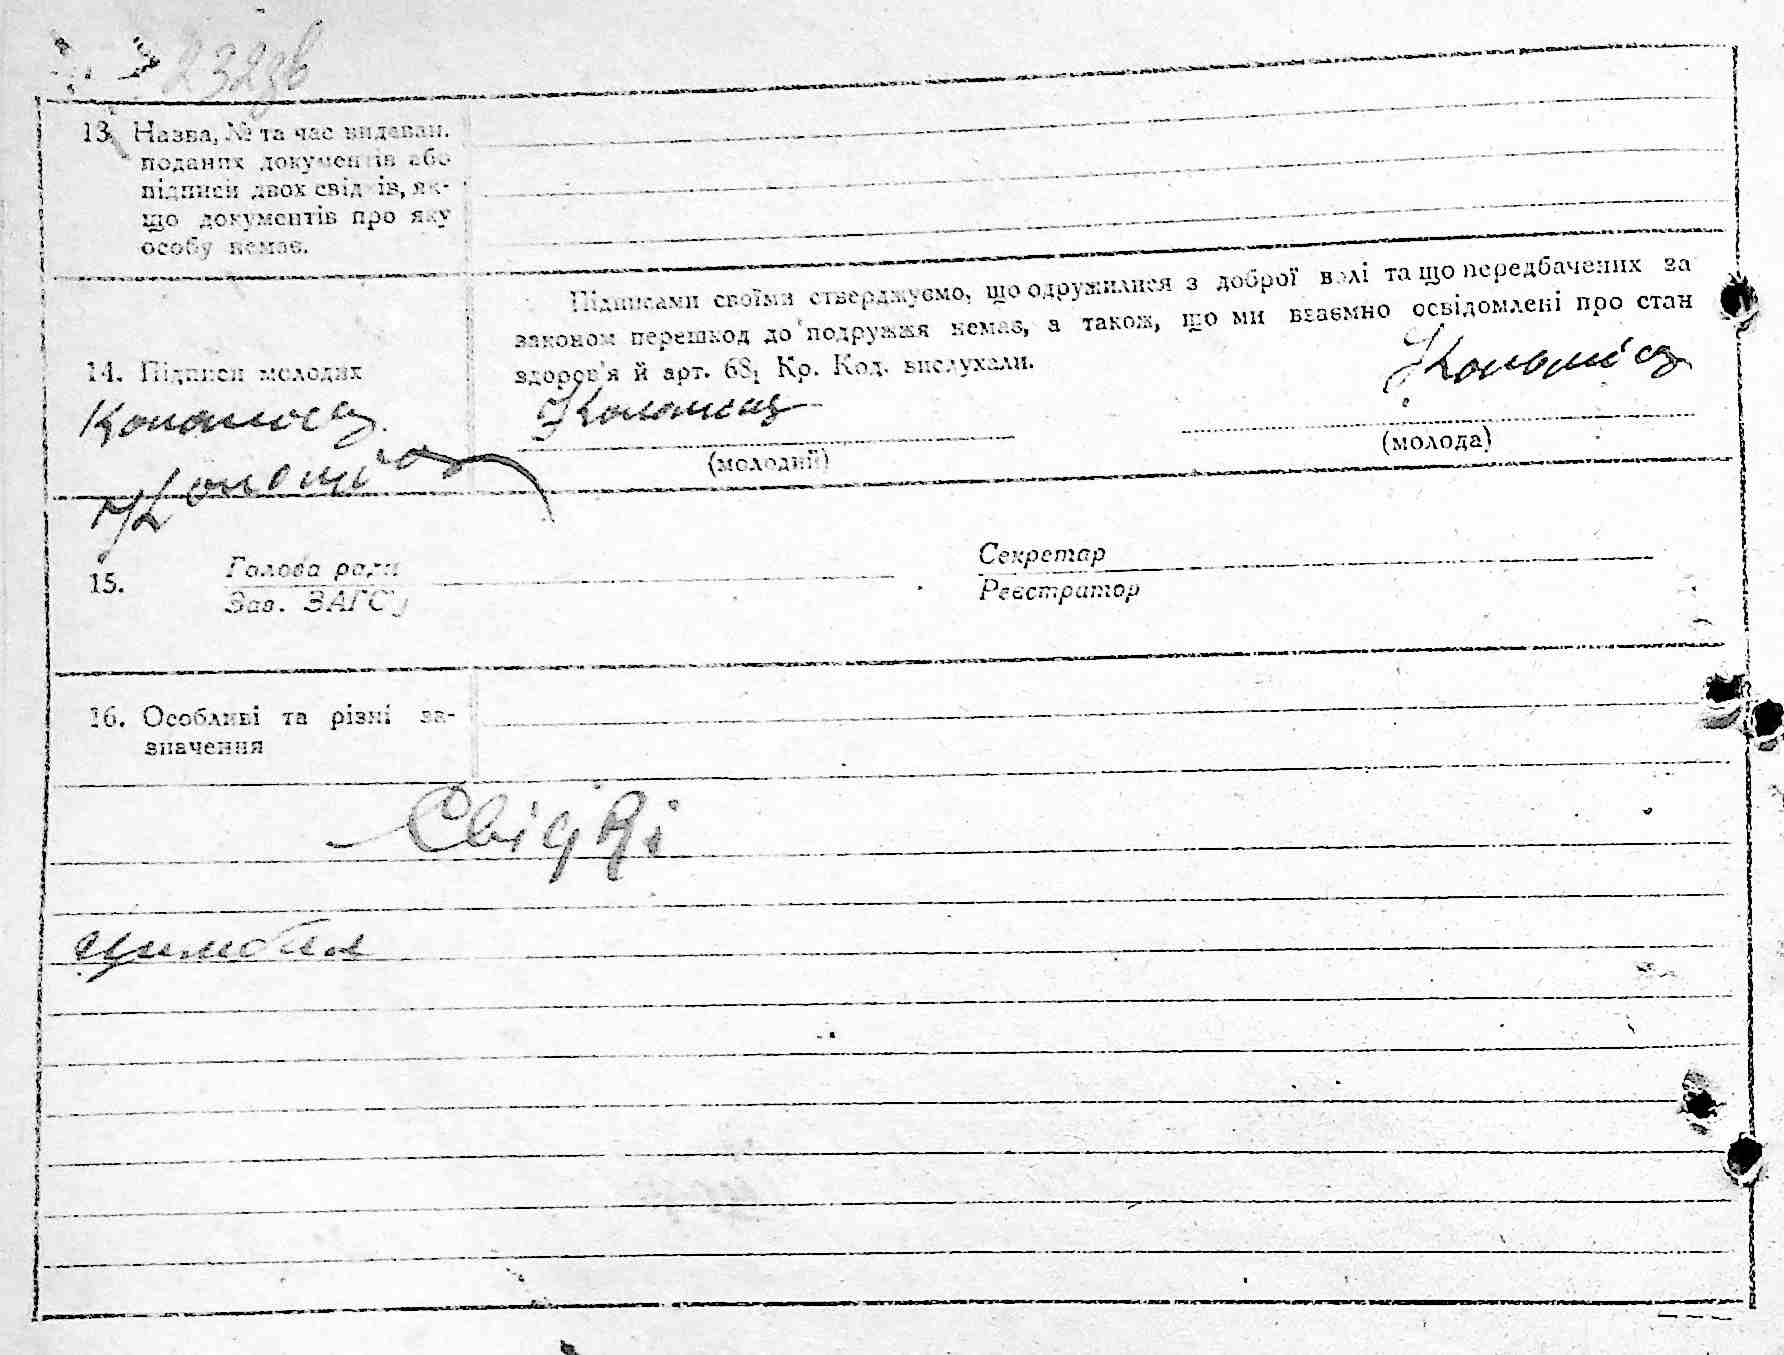 232зв
13. Назва, № та час видаван.
поданих документів або
підписи двох свідків, як-
що документів про яку
особу немає.
Підписами своїми стверджуємо, що одружилися з доброї волі та що передбачених за
законом перешкод до подружжя немає, а також, що ми взаємно освідомлені про стан
здоров'я й арт. 68, Кр. Код. вислухали.
14. Підписи молодих
(молодий)
(молода)
15. Голова ради
Зав. ЗАГС'у
Секретар
Реєстратор
16. Особливі та різні за-
значення
Свідкі